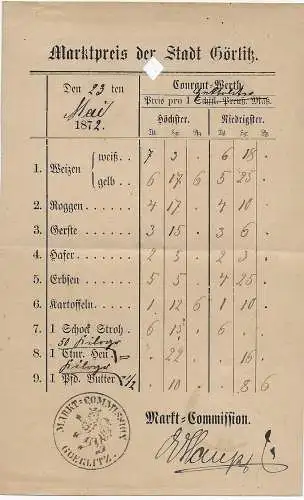 Marktpreis der Stadt Görlitz.
Den 23 ten
Mai
1872.
Courant-Werth
Preis pro 1 Schffl. Preuß. Maß.
Höchster. Niedrigster.
Tlr. Sgr. Pf. Tlr. Sgr. Pf.
1. Weizen { weiß. 7 3 . 6 18 .
gelb . 6 17 6 5 25 .
2. Roggen . . . . . . 4 17 . 4 10 .
3. Gerste . . . . . . 3 15 . 3 6 .
4. Hafer . . . . . . 2 3 . 2 3 .
5. Erbsen . . . . . . 5 5 . 4 25 .
6. Kartoffeln . . . . . 1 12 6 1 10 .
7. 1 Schock Stroh . 6 15 . 6 . .
50 Kilogr
8. 1 Ctnr. Heu . 22 . . 16 .
Kilogr
9. 1 Pfd. Butter 1/2 . 10 . . 8 6
MARKT-COMMISSION
GOERLITZ.
Markt-Commission.